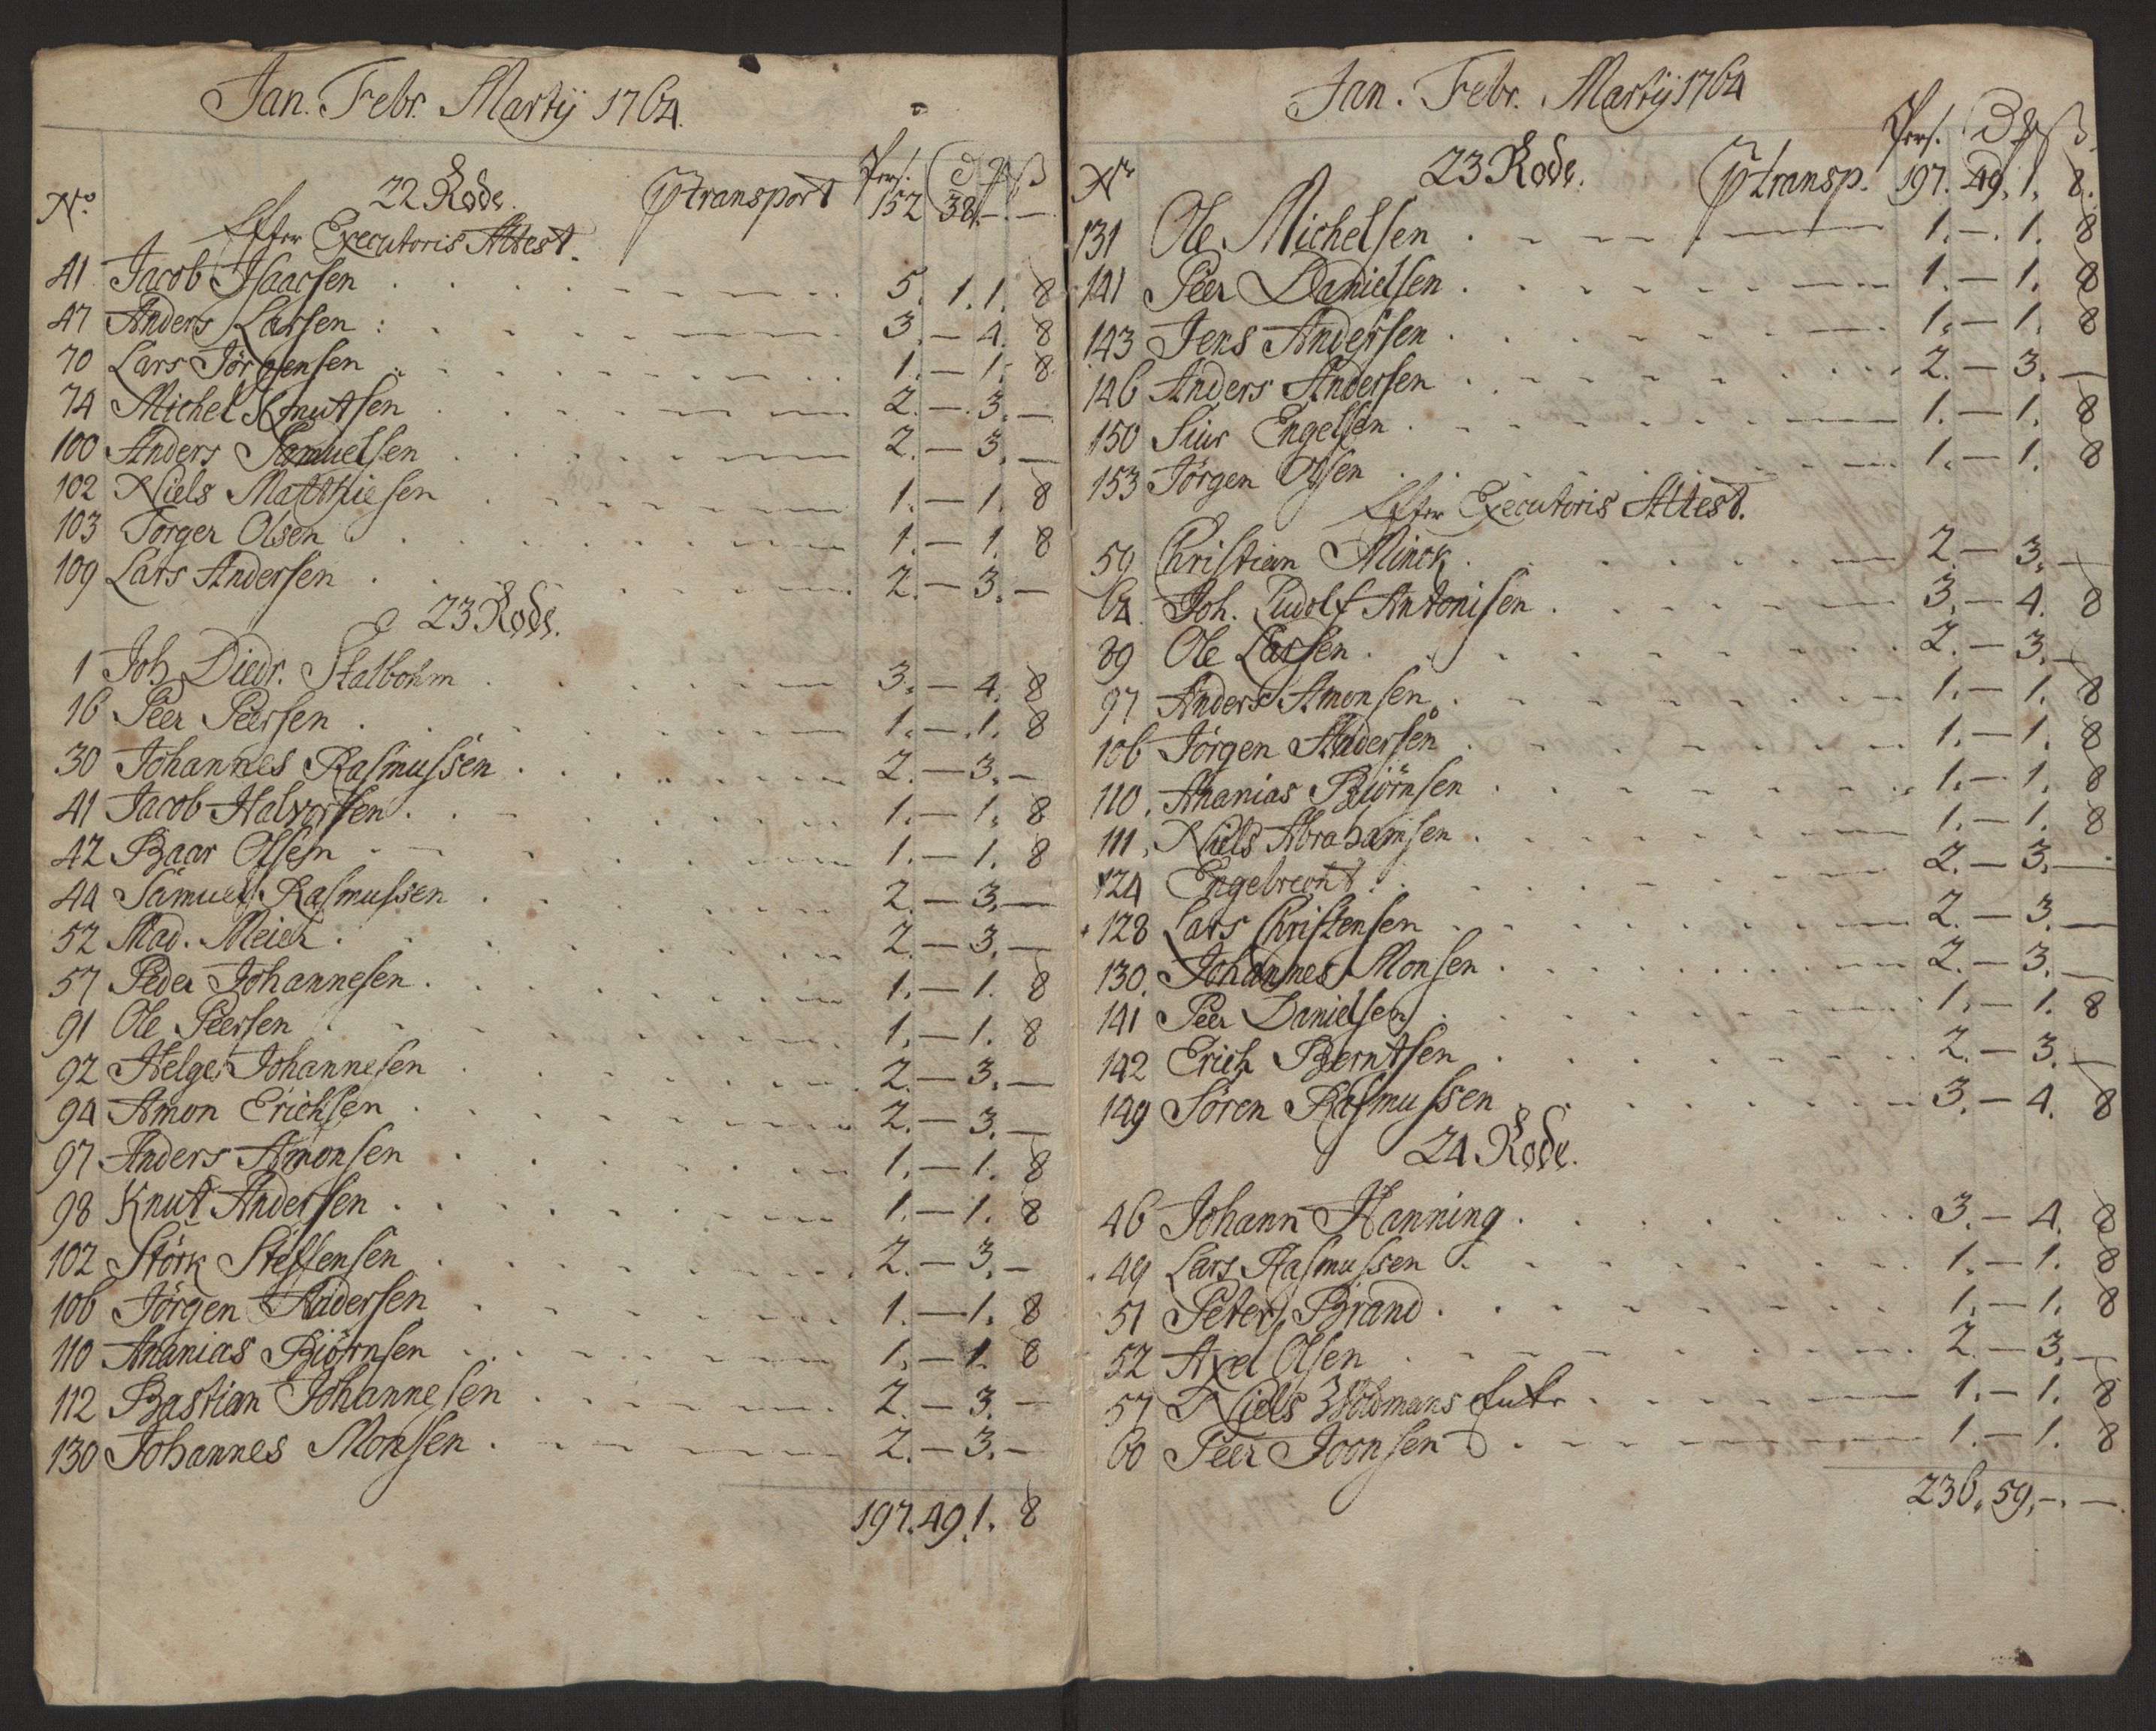 Jan. Febr. Martij 1764.
Pers. Rd ℳ ß
No. 22 Rode. Pr transport 152 38 - -
Efter Executoris Attest.
41 Jacob Isaacsen 5. 1. 1. 8
47 Anders Larsen 3. - 4. 8
70 Lars Jörgensen 1. - 1. 8
74 Michel Knutsen 2. - 3. -
100 Anders Samuelsen 2. - 3. -
102 Niels Matthiesen 1. - 1. 8
103 Torger Olsen 1. - 1. 8
109 Lars Andersen 2. - 3. -
23 Rode.
1 Joh. Diedr. Stalbohm 3. - 4. 8
16 Peer Peersen 1. - 1. 8
30 Johannes Rasmussen 2. - 3. -
41 Jacob Halvorsen 1. - 1. 8
42 Baar Olsen 1. - 1. 8
44 Samuel Rasmussen 2. - 3. -
52 Mad. Meier 2. - 3. -
57 Peder Johannesen 1. - 1. 8
91 Ole Peersen 1. - 1. 8
92 Helge Johannesen 2. - 3. -
94 Amon Erichsen 2. - 3. -
97 Anders Amonsen 1. - 1. 8
98 Knut Andersen 1. - 1. 8
102 Störk Steffensen 2. - 3. -
106 Jörgen Andersen 1. - 1. 8
110 Ananias Biörnsen 1. - 1. 8
112 Bastian Johannesen 2. - 3. -
130 Johannes Monsen 2. - 3. -
197. 49. 1. 8
Jan. Febr. Martij 1764
Pers. Rd ℳ ß
No 23 Rode. Pr transp. 197. 49. 1. 8.
131 Ole Michelsen 1. - 1. 8
141 Peer Danielsen 1. - 1. 8
143 Jens Andersen 1. - 1. 8
146 Anders Andersen 2. - 3. -
150 Siur Engelsen 1. - 1. 8
153 Jörgen Olsen 1. - 1. 8
Efter Executoris Attest.
59 Christian Minck 2. - 3. -
64. Joh. Ludolf Antonisen 3. - 4. 8
89 Ole Larsen 2. - 3. -
97 Anders Amonsen 1. - 1. 8
106 Jörgen Andersen 1. - 1. 8
110. Ananias Biörnsen 1. - 1. 8
111. Niels Abrahamsen 1. - 1. 8
124 Engebrecht 2. - 3. -
128 Lars Christensen 2. - 3. -
130. Johannes Monsen 2. - 3. -
141 Peer Danielsen 1. - 1. 8
142 Erich Berntsen 2. - 3. -
149 Sören Rasmussen 3. - 4. 8
24 Rode.
46 Johann Hanning 3. - 4. 8
49 Lars Rasmussen 1. - 1. 8
51 Peter Brand 1. - 1. 8
52 Axel Olsen 2. - 3. -
57 Niels Woldmans 1. - 1. 8
60 Peer Joonsen 1. - 1. 8
236. 59. - -